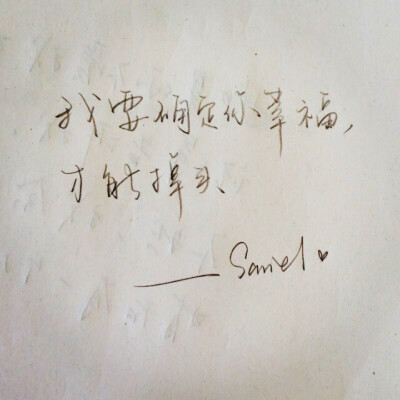 我要确定你幸福，
才能掉头
—— Saniel ♥